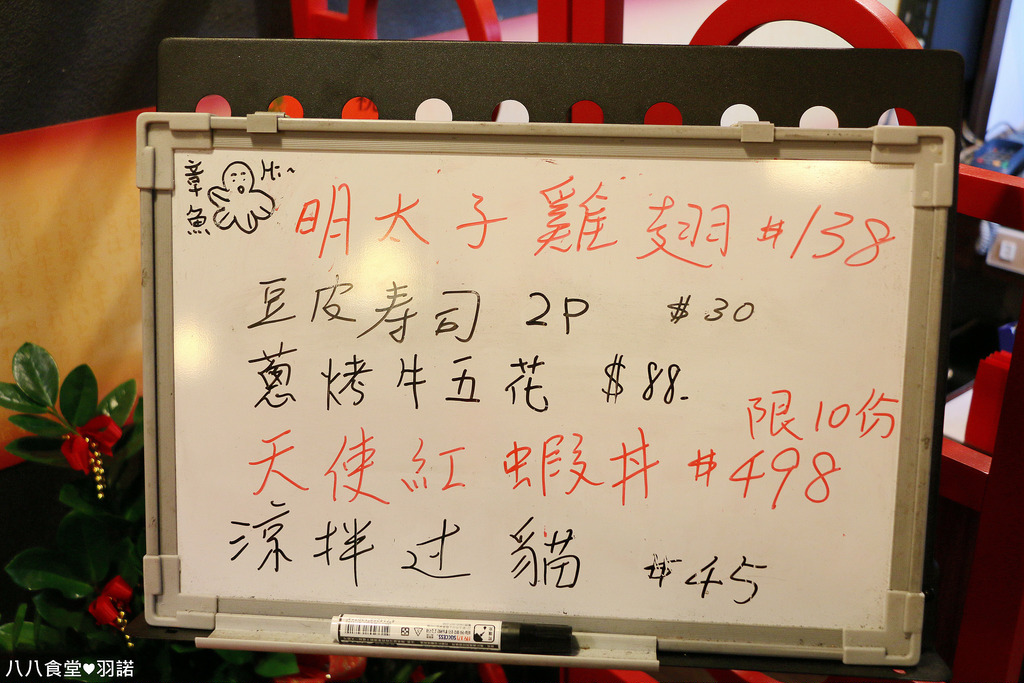 章魚
Hi~
明太子雞翅 #138
豆皮寿司 2P $30
蔥烤牛五花 $88.
限10份
天使紅蝦丼 #498
涼拌过貓 #45
SUCCESS
八八食堂♥羽諾